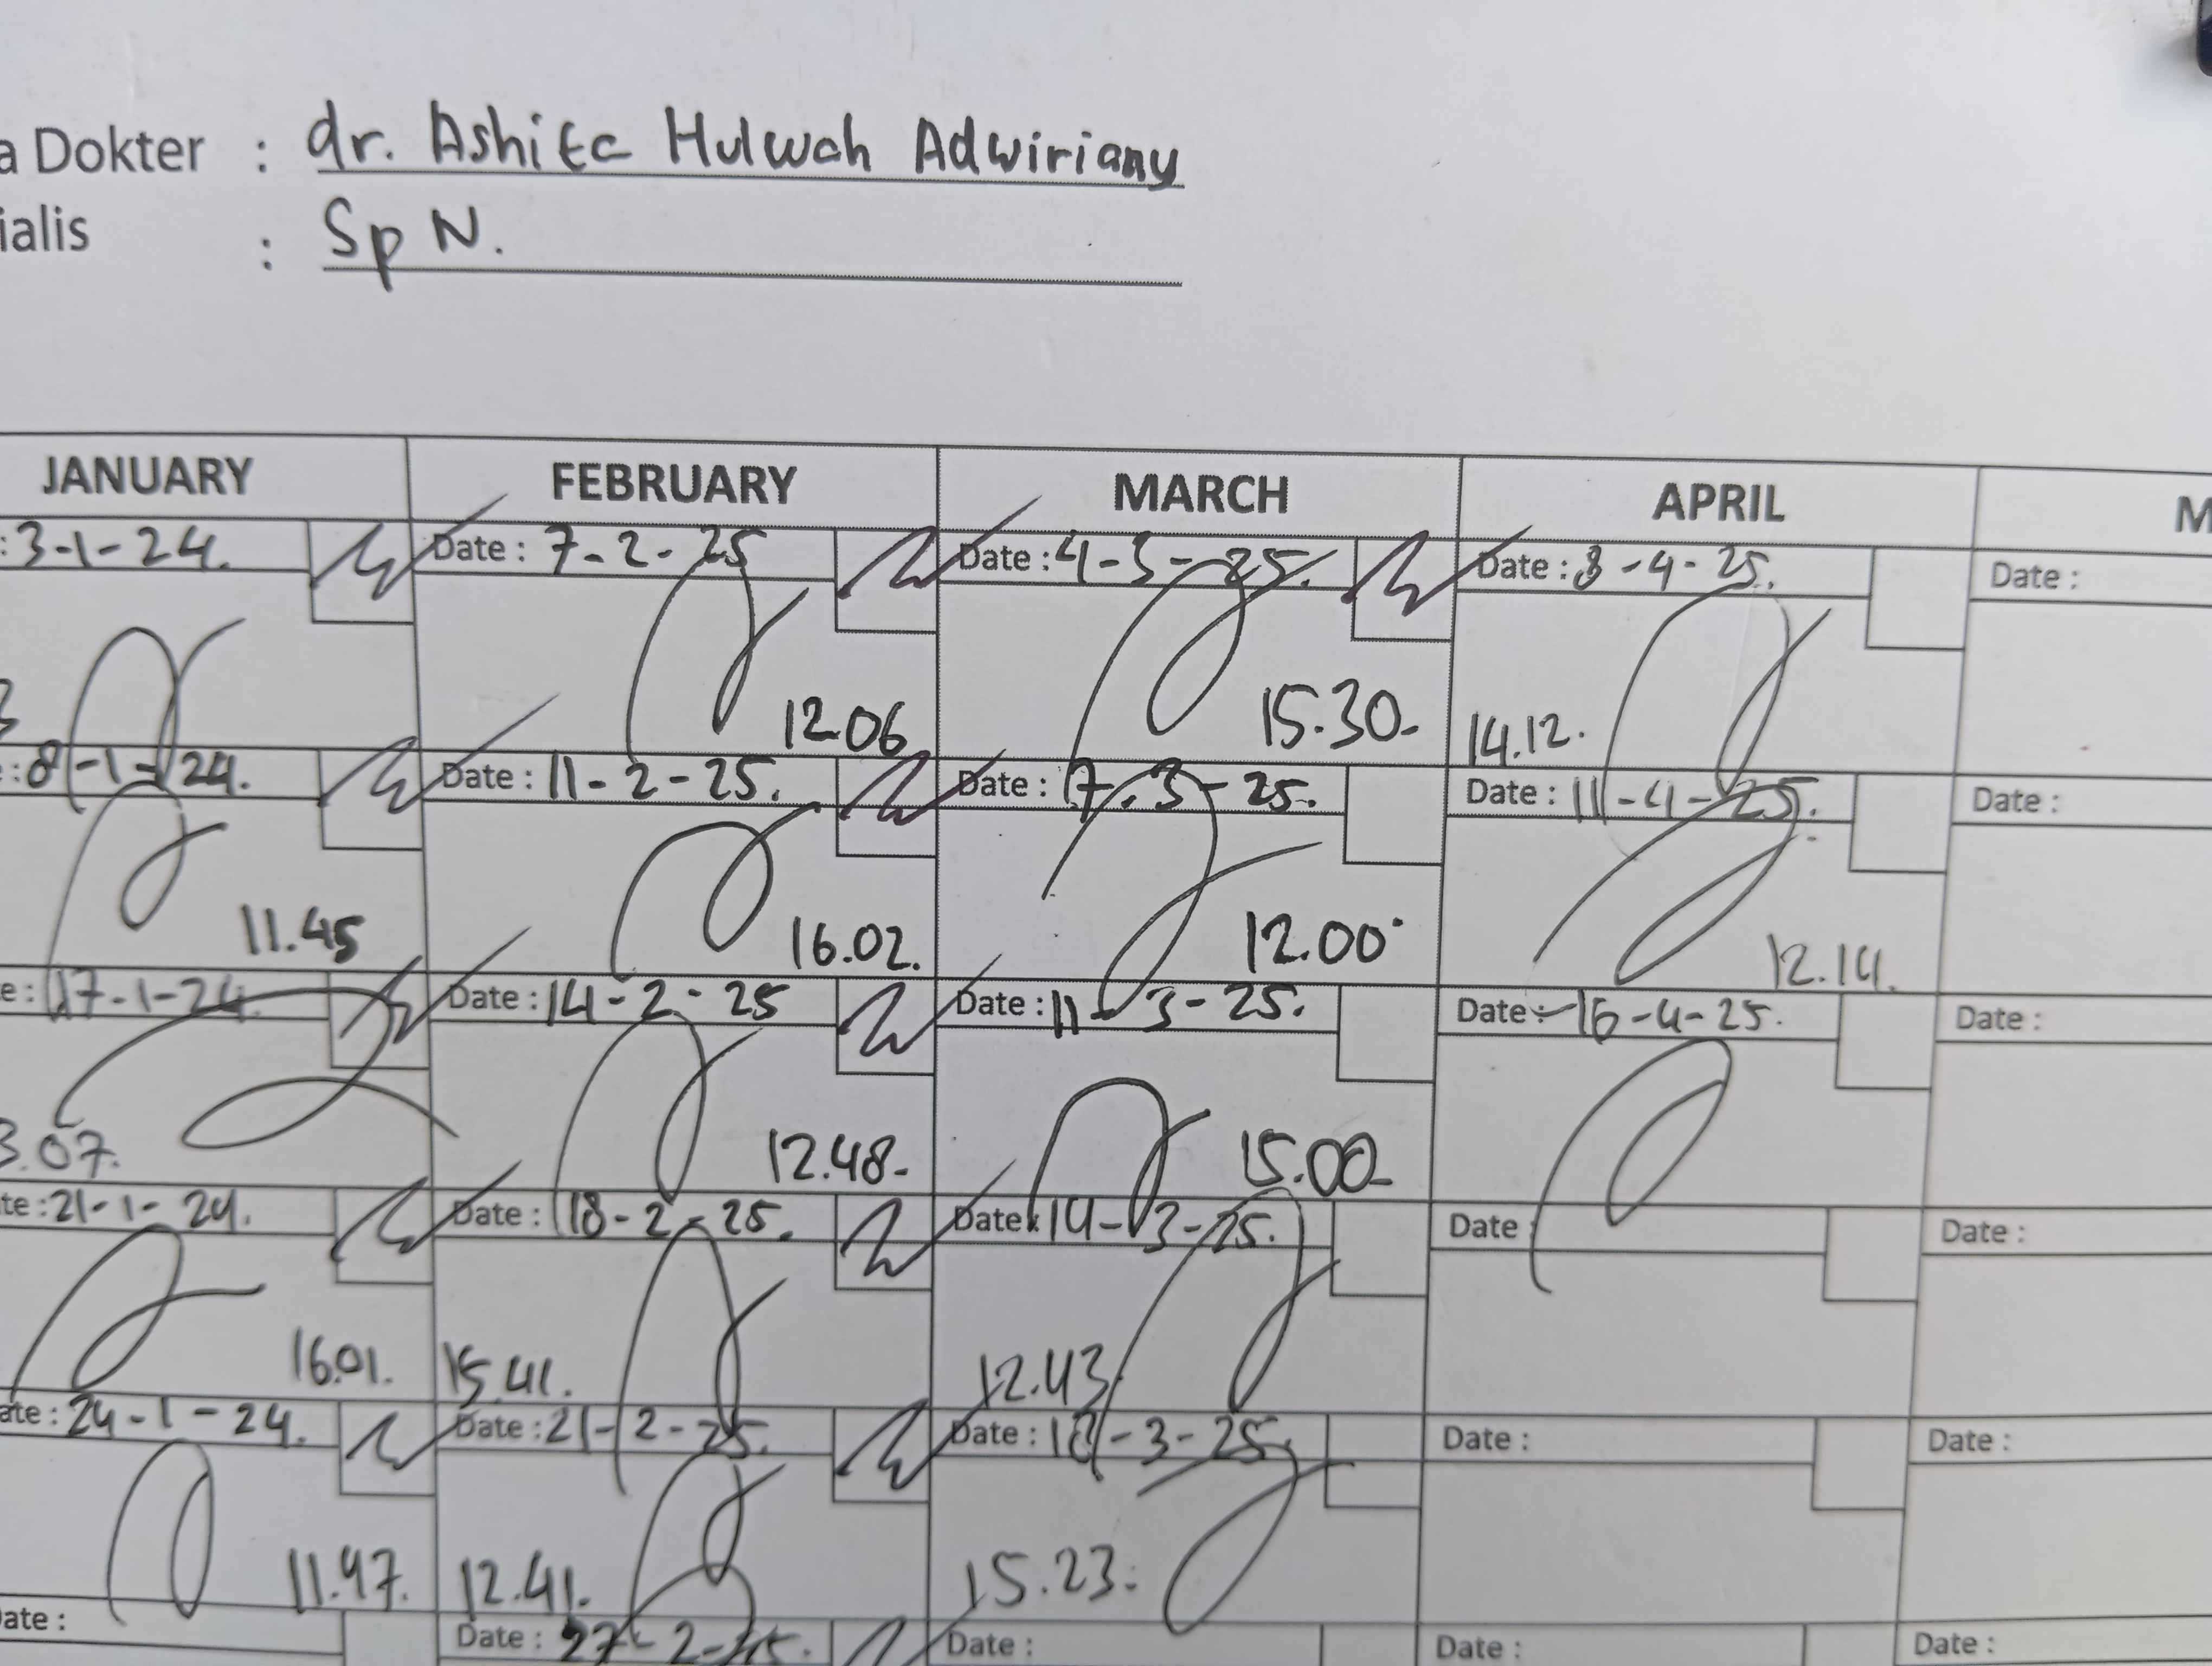 a Dokter : dr. Ashita Hulwah Adwiriany
ialis : Sp N.
JANUARY FEBRUARY MARCH APRIL M
: 3-1-24. Date : 7-2-25 Date : 4-3-25. Date : 8-4-25. Date :
12.06 15.30- 14.12.
: 8-1-24. Date : 11-2-25. Date : 7.3-25. Date : 11-4-25. Date :
11.45 16.02. 12.00 12.14.
e : 17-1-24. Date : 14-2-25 Date : 11-3-25. Date : 16-4-25. Date :
3.07. 12.48- 15.00
te : 21-1-24. Date : 18-2-25. Date : 14-3-25. Date Date :
16.01. 15.41. 12.43
ate : 24-1-24. Date : 21-2-25. Date : 18-3-25. Date : Date :
11.47. 12.41. 15.23.
ate : Date : 27-2-25. Date : Date : Date :